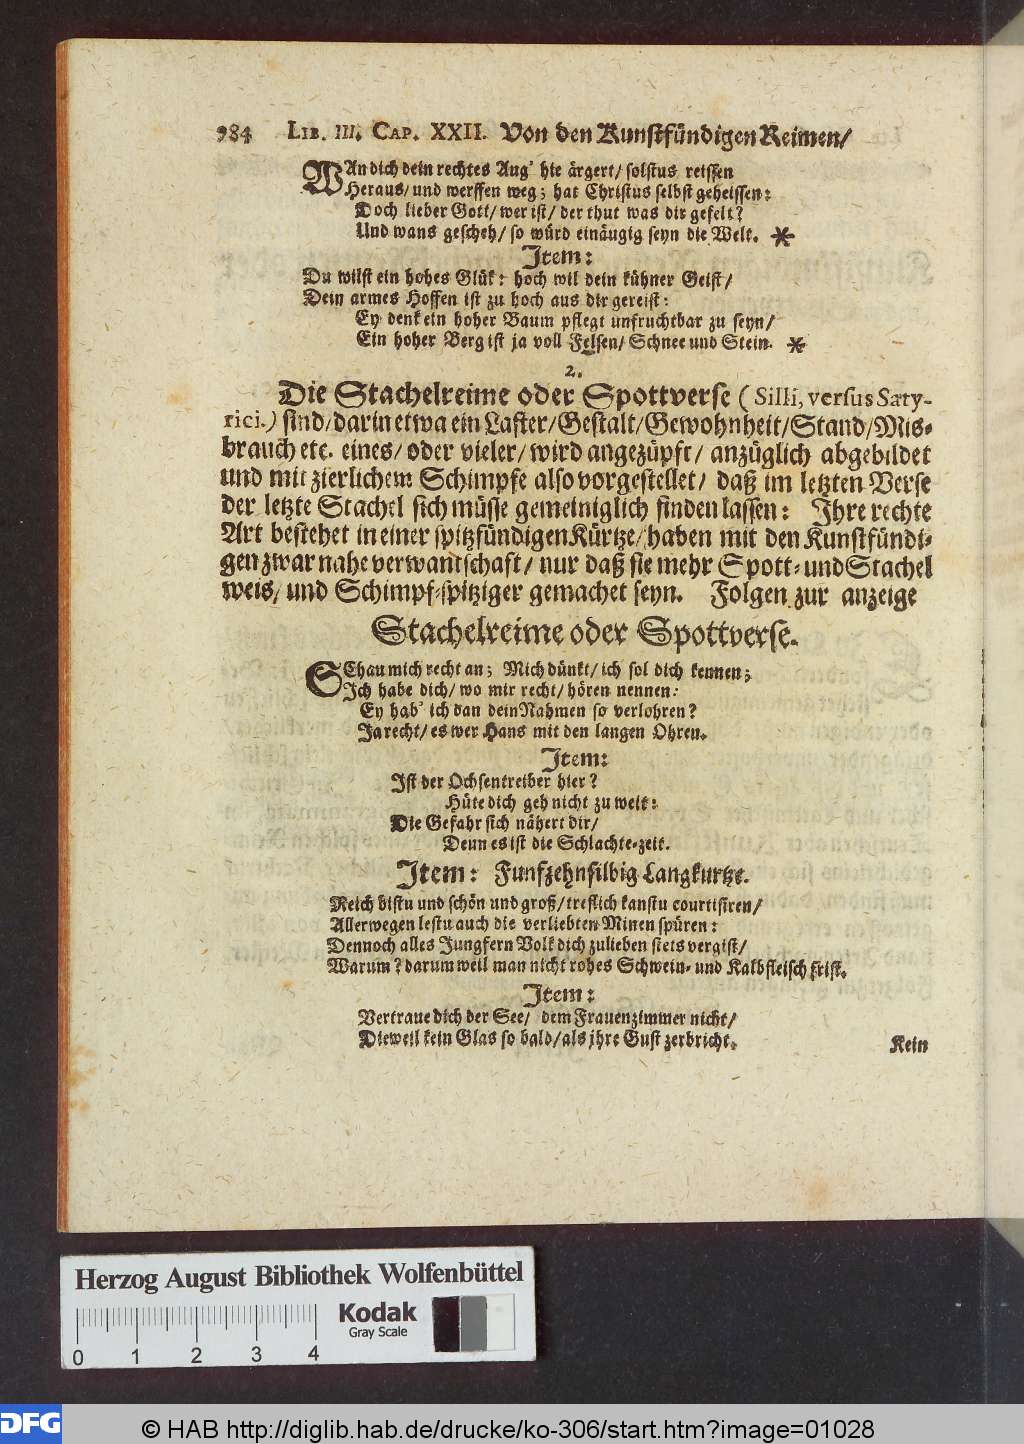 984 LIB. III. CAP. XXII. Von den Kunstfündigen Reimen/
WAn dich dein rechtes Aug' hie ärgert/ solstus reissen
Heraus/ und werffen weg; hat Christus selbst geheissen:
Doch lieber Gott/ wer ist/ der thut was dir gefelt?
Und wans gescheh/ so würd einäugig seyn die Welt. *
Item:
Du wilst ein hohes Glük: hoch wil dein kühner Geist/
Dein armes Hoffen ist zu hoch aus dir gereist:
Ey denk ein hoher Baum pflegt unfruchtbar zu seyn/
Ein hoher Berg ist ja voll Felsen/ Schnee und Stein. *
2.
Die Stachelreime oder Spottverse (Silli, versus Saty-
rici.) sind/ darin etwa ein Laster/ Gestalt/ Gewohnheit/ Stand/ Mis-
brauch etc. eines/ oder vieler/ wird angezüpft/ anzüglich abgebildet
und mit zierlichem Schimpfe also vorgestellet/ daß im letzten Verse
der letzte Stachel sich müsse gemeiniglich finden lassen: Ihre rechte
Art bestehet in einer spitzfündigen Kürtze/ haben mit den Kunstfündi-
gen zwar nahe verwantschaft/ nur daß sie mehr Spott- und Stachel
weis/ und Schimpf-spitziger gemachet seyn. Folgen zur anzeige
Stachelreime oder Spottverse.
SChau mich recht an; Mich dünkt/ ich sol dich kennen;
Ich habe dich/ wo mir recht/ hören nennen:
Ey hab' ich dan dein Nahmen so verlohren?
Ja recht/ es wer Hans mit den langen Ohren.
Item:
Ist der Ochsentreiber hier?
Hüte dich geh nicht zu weit:
Die Gefahr sich nähert dir/
Denn es ist die Schlachte-zeit.
Item: Funfzehnsilbig Langkurtze.
Reich bistu und schön und groß/ treflich kanstu courtisiren/
Allerwegen lestu auch die verliebten Minen spüren:
Dennoch alles Jungfern Volk dich zulieben stets vergist/
Warum? darum weil man nicht rohes Schwein- und Kalbfleisch frist.
Item:
Vertraue dich der See/ dem Frauenzimmer nicht/
Dieweil kein Glas so bald/ als jhre Gust zerbricht.
Kein
Herzog August Bibliothek Wolfenbüttel
Kodak
Gray Scale
0 1 2 3 4
DFG
© HAB http://diglib.hab.de/drucke/ko-306/start.htm?image=01028